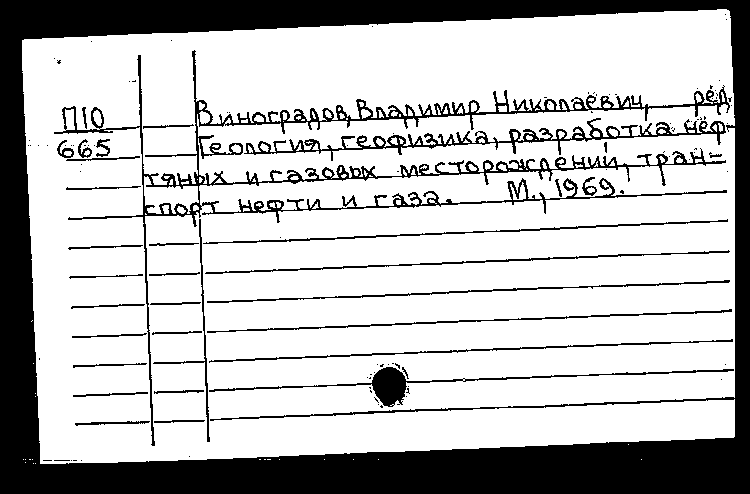 П10 Виноградов, Владимир Николаевич, ред.
665 Геология, геофизика, разработка неф-
тяных и газовых месторождений, тран-
спорт нефти и газа. М., 1969.